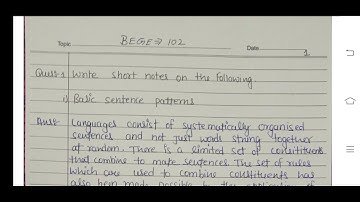 BEGE → 102
Topic
Date
1
Ques-1 Write short notes on the following.
i) Basic sentence patterns
Ans:- Languages consist of systematically organised
sentences and not just words strung together
at random. There is a limited set of constituents
that combine to make sentences. The set of rules
which are used to combine constituents has
also been made possible